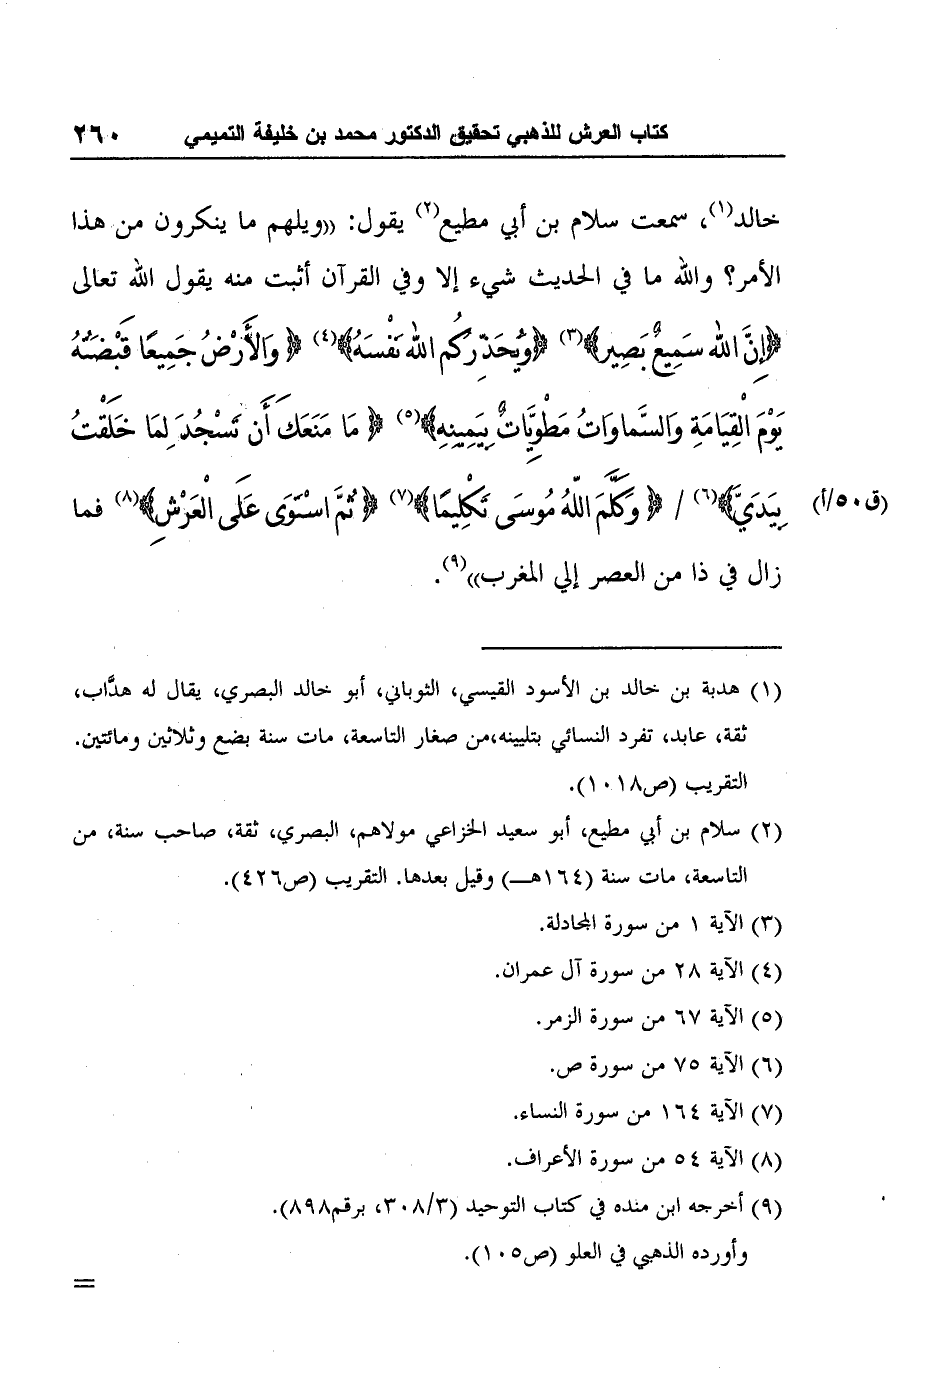 كتاب العرش للذهبي تحقيق الدكتور محمد بن خليفة التميمي ٢٦٠
خالد(١)، سمعت سلام بن أبي مطيع(٢) يقول: ((ويلهم ما ينكرون من هذا
الأمر؟ والله ما في الحديث شيء إلا وفي القرآن أثبت منه يقول الله تعالى
﴿إِنَّ الله سَمِيعٌ بَصِير﴾(٣) ﴿وَيُحَذِّرُكُم الله نَفْسَهُ﴾(٤) ﴿وَالأَرْضُ جَمِيعًا قَبْضَتُهُ
يَوْمَ الْقِيَامَةِ وَالسَّماوَاتُ مَطْوِيَّاتٌ بِيَمِينِهِ﴾(٥) ﴿مَا مَنَعَكَ أَن تَسْجُدَ لِمَا خَلَقْتُ
بِيَدَيَّ﴾(٦) / ﴿وَكَلَّمَ اللَّهُ مُوسَى تَكْلِيمًا﴾(٧) ﴿ثُمَّ اسْتَوَى عَلَى الْعَرْشِ﴾(٨) فما
(ق٥٠/أ)
زال في ذا من العصر إلي المغرب))(٩).
(١) هدبة بن خالد بن الأسود القيسي، الثوباني، أبو خالد البصري، يقال له هدَّاب،
ثقة، عابد، تفرد النسائي بتليينه،من صغار التاسعة، مات سنة بضع وثلاثين ومائتين.
التقريب (ص١٠١٨).
(٢) سلام بن أبي مطيع، أبو سعيد الخزاعي مولاهم، البصري، ثقة، صاحب سنة، من
التاسعة، مات سنة (١٦٤هـ) وقيل بعدها. التقريب (ص٤٢٦).
(٣) الآية ١ من سورة المجادلة.
(٤) الآية ٢٨ من سورة آل عمران.
(٥) الآية ٦٧ من سورة الزمر.
(٦) الآية ٧٥ من سورة ص.
(٧) الآية ١٦٤ من سورة النساء.
(٨) الآية ٥٤ من سورة الأعراف.
(٩) أخرجه ابن منده في كتاب التوحيد (٣٠٨/٣، برقم٨٩٨).
وأورده الذهبي في العلو (ص١٠٥).
=